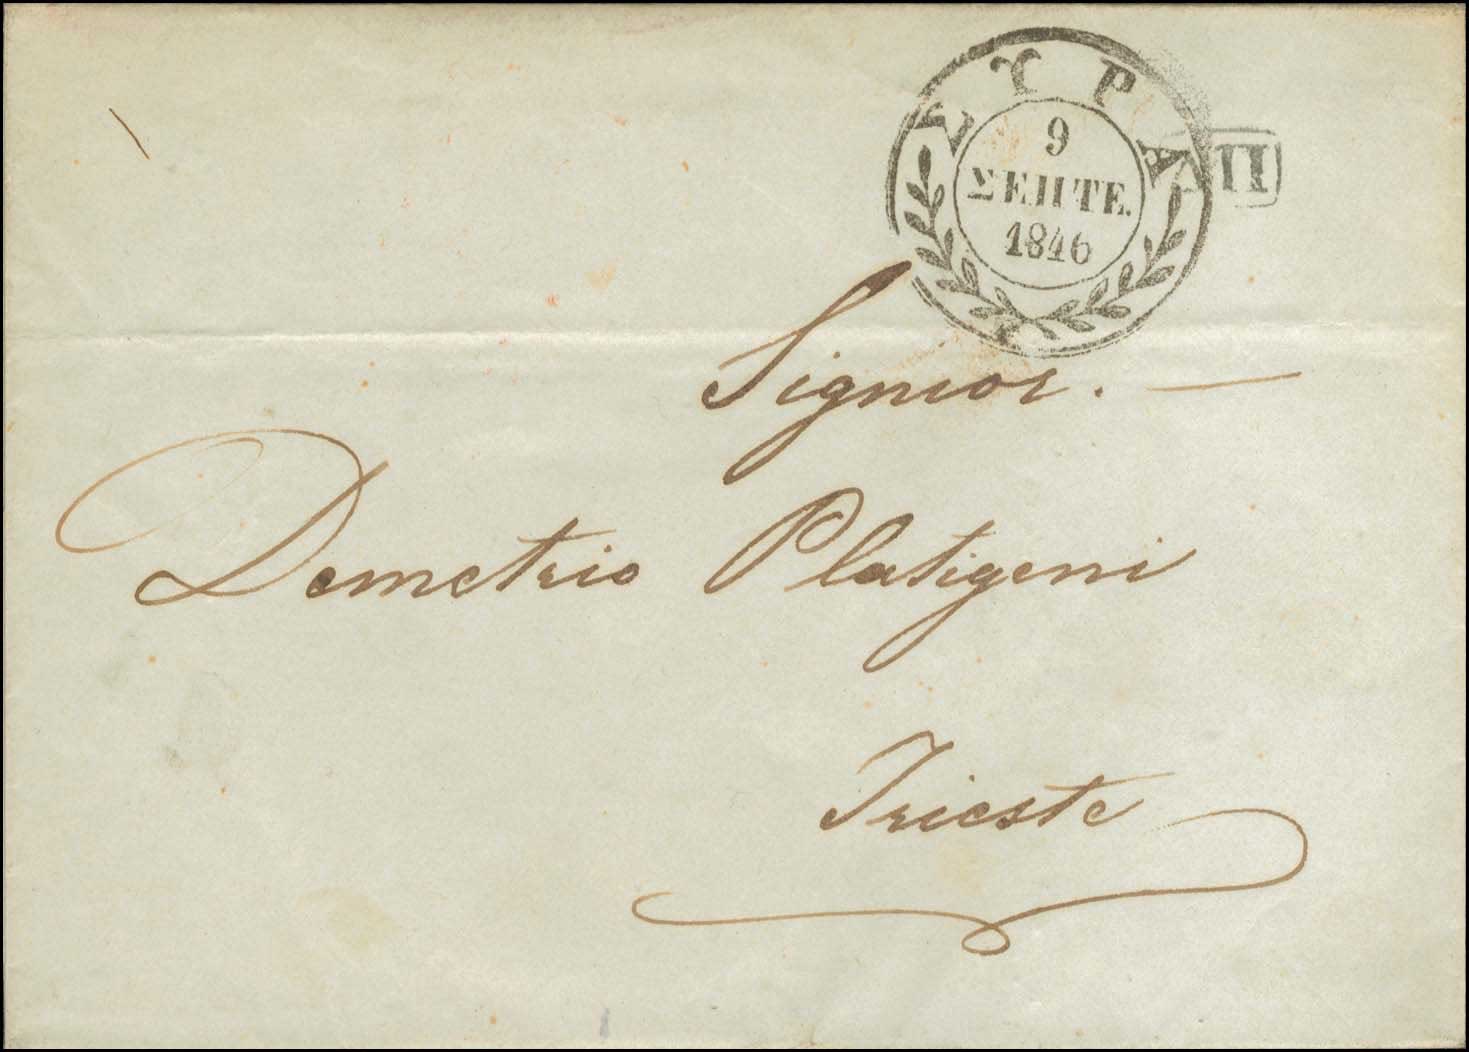 ΣΥΡΑ
9
ΣΕΠΤΕ.
1846
Signior. —
Demetrio Platigeni
Trieste